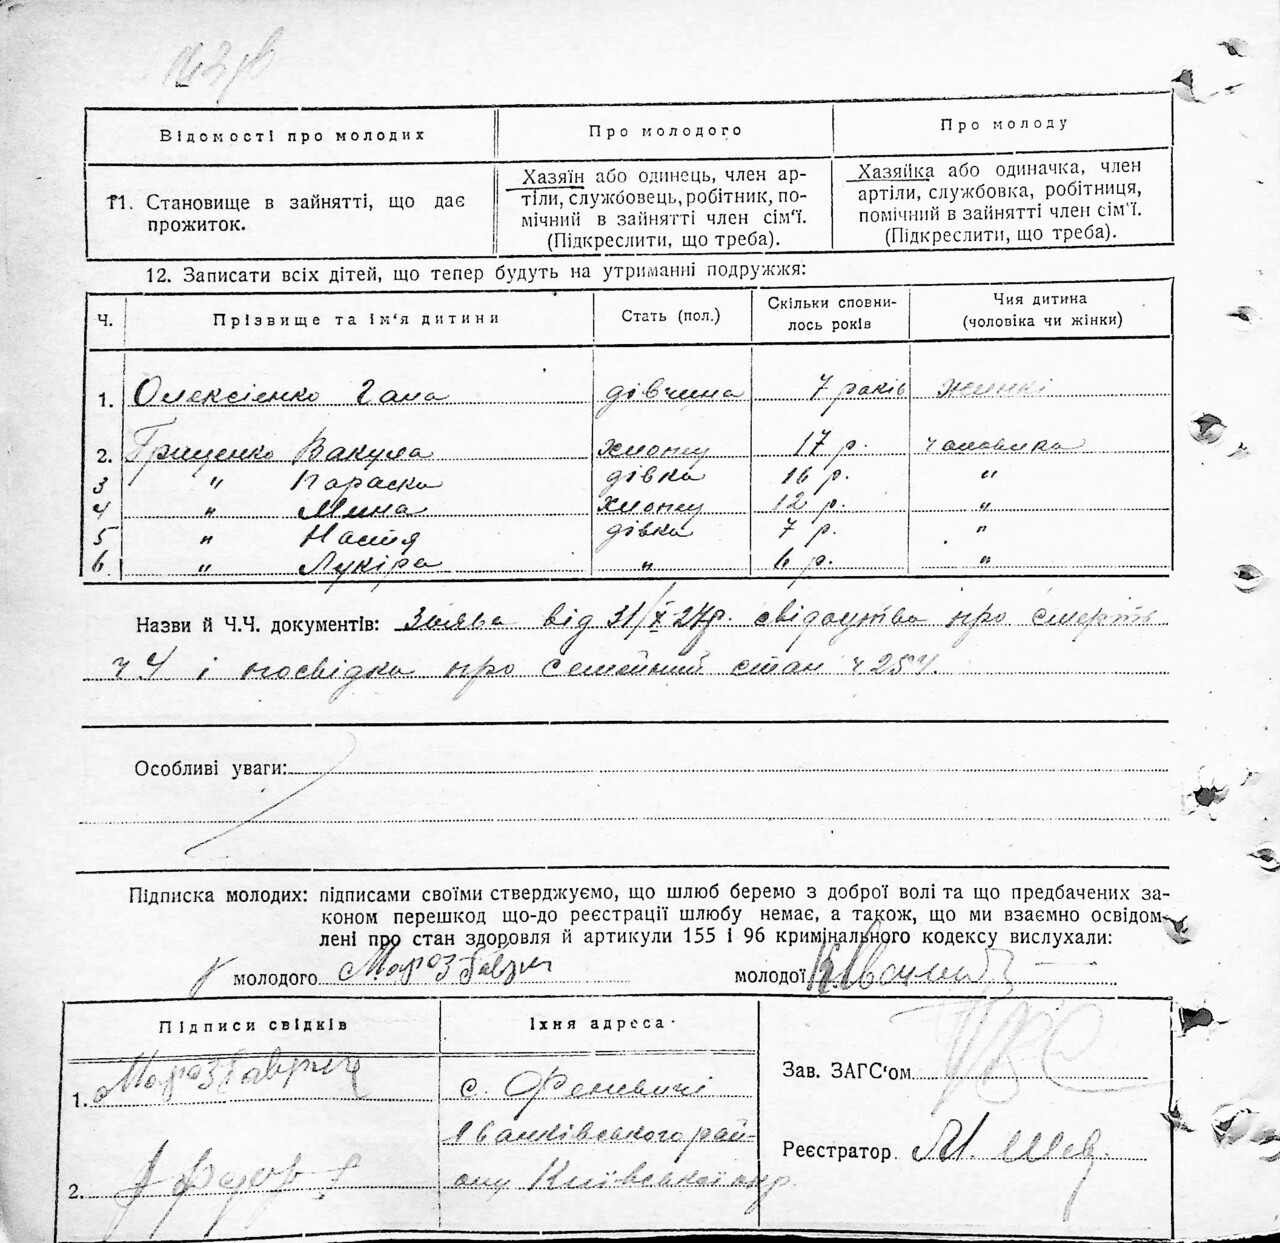 Відомості про молодих
Про молодого
Про молоду
11. Становище в зайнятті, що дає
прожиток.
Хазяїн або одинець, член ар-
тіли, службовець, робітник, по-
мічний в зайнятті член сім'ї.
(Підкреслити, що треба).
Хазяйка або одиначка, член
артіли, службовка, робітниця,
помічний в зайнятті член сім'ї.
(Підкреслити, що треба).
12. Записати всіх дітей, що тепер будуть на утриманні подружжя:
Ч.
Прізвище та ім'я дитини
Стать (пол.)
Скільки сповни-
лось років
Чия дитина
(чоловіка чи жінки)
1. Олексієнко Гана дівчина 7 років жинкі
2. Грищенко Вакула хлопчу 17 р. чоловика
3 " Параска дівка 16 р. "
4 " Мина хлопчу 12 р. "
5 " Настя дівка 7 р. "
6 " Лукіра " 6 р. "
Назви й Ч.Ч. документів: Заява від 31/X 27р. свідоцтва про смерть
ч 4 і посвідка про семейний стан ч 254.
Особливі уваги:
Підписка молодих: підписами своїми стверджуємо, що шлюб беремо з доброї волі та що предбачених за-
коном перешкод що-до реєстрації шлюбу немає, а також, що ми взаємно освідом-
лені про стан здоровля й артикули 155 і 96 кримінального кодексу вислухали:
молодого Мороз Гаврил молодої
Підписи свідків
Їхня адреса
1. Мороз Гаврил
с. Феневичі
Іванківського рай-
ону Київської окр.
2.
Зав. ЗАГС'ом
Реєстратор М. Шев.